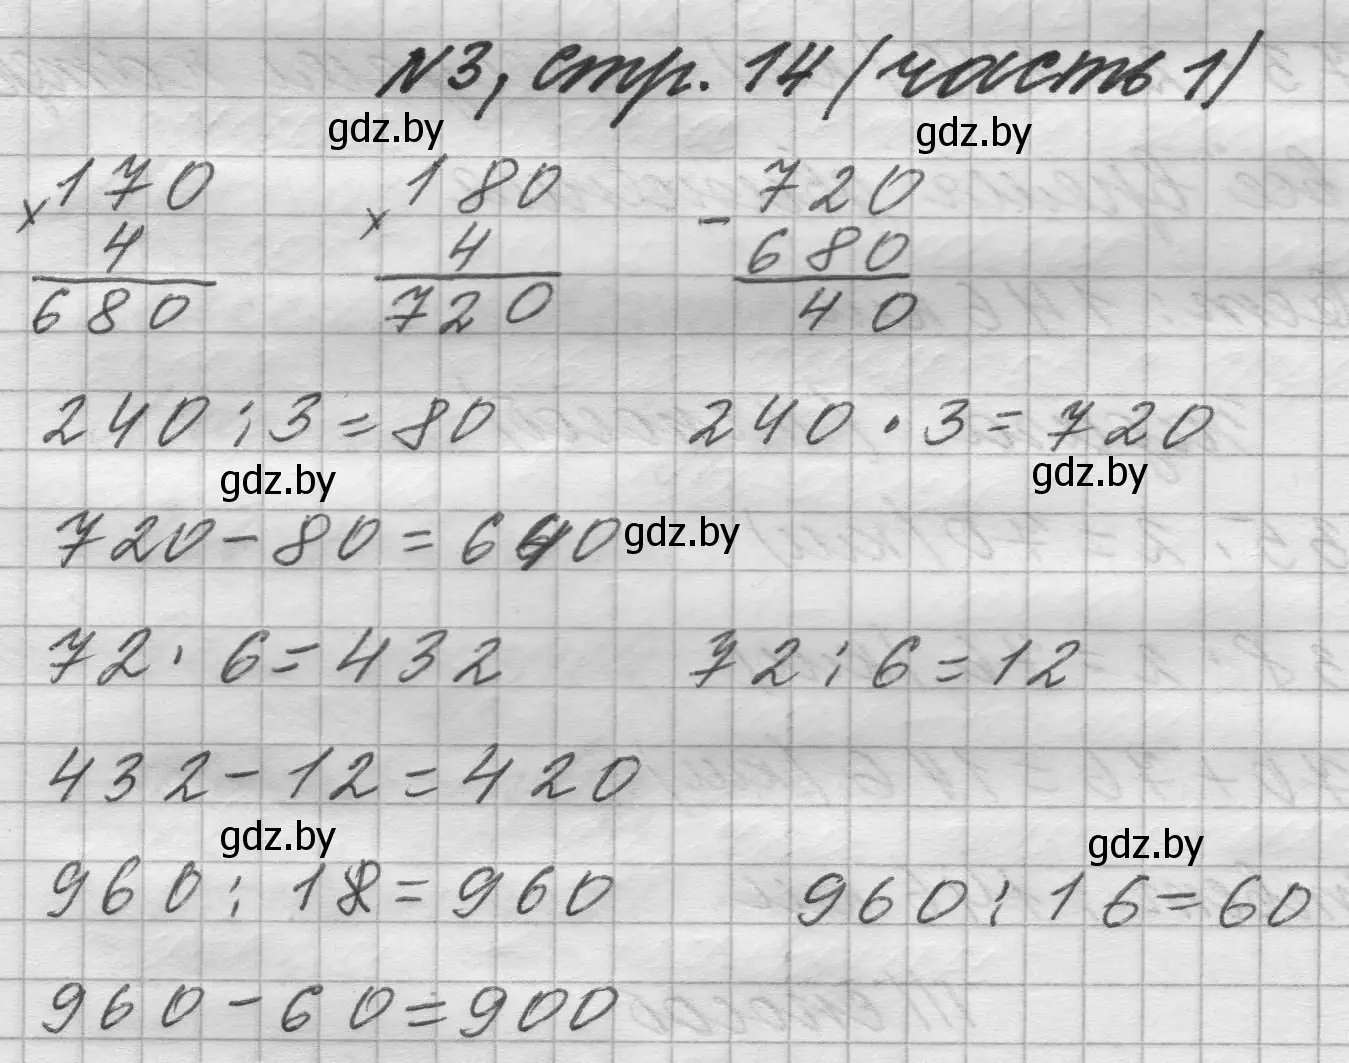 №3, стр. 14 (часть 1)
gdz.by gdz.by
170 180 720
× 4 × 4 - 680
680 720 40
240 : 3 = 80 240 · 3 = 720
gdz.by gdz.by
720 - 80 = 640 gdz.by
72 · 6 = 432 72 : 6 = 12
432 - 12 = 420
gdz.by gdz.by
960 : = 960 960 : 16 = 60
960 - 60 = 900